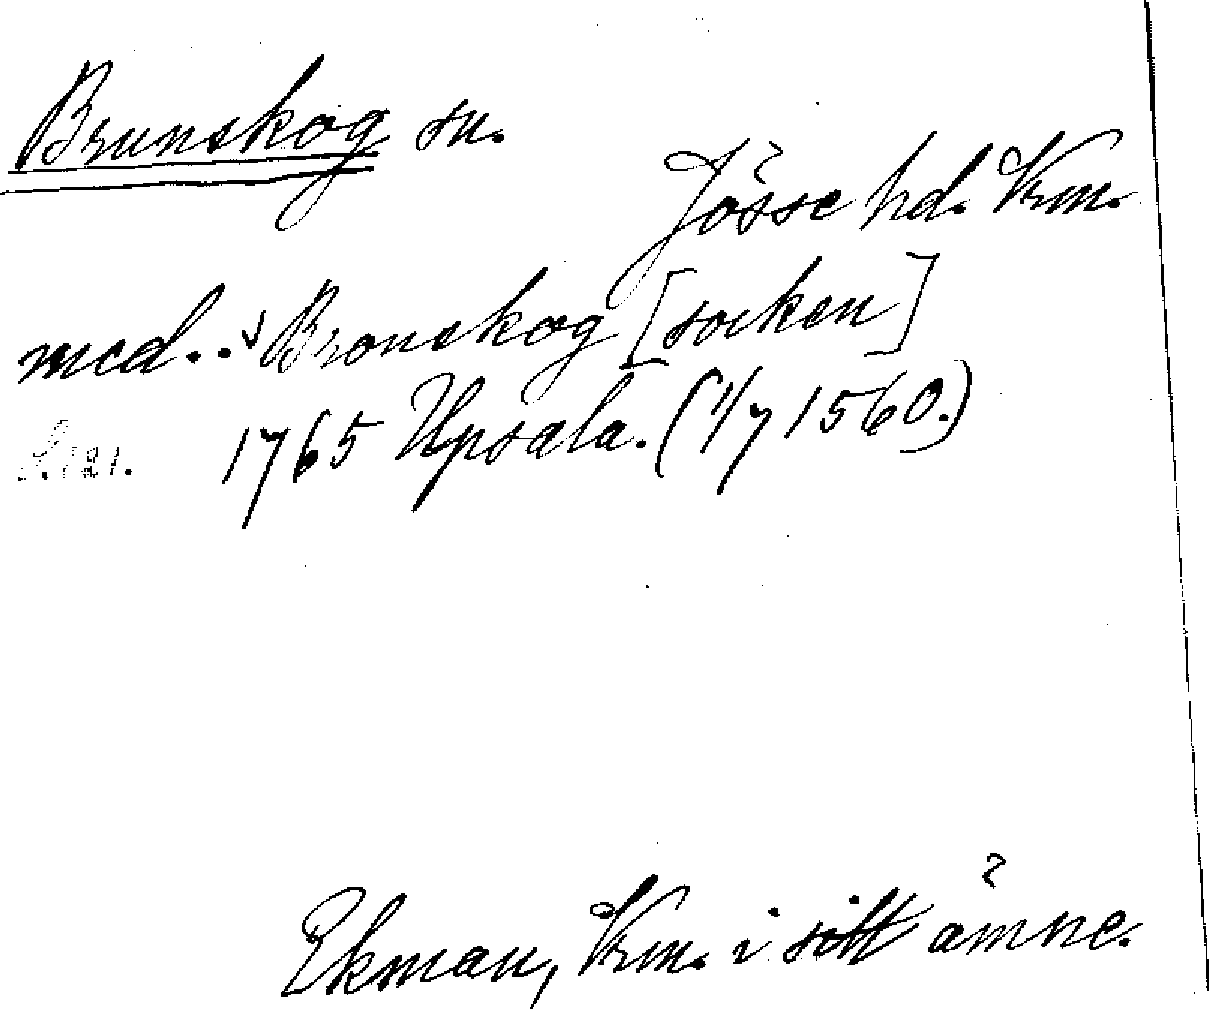 Brunskog sn.
Jösse hd. Vrm.
med.. Bronskog [socken]
1765 Upsala. (1/7 1560.)
Ekman, Vrm. i sitt ämne.